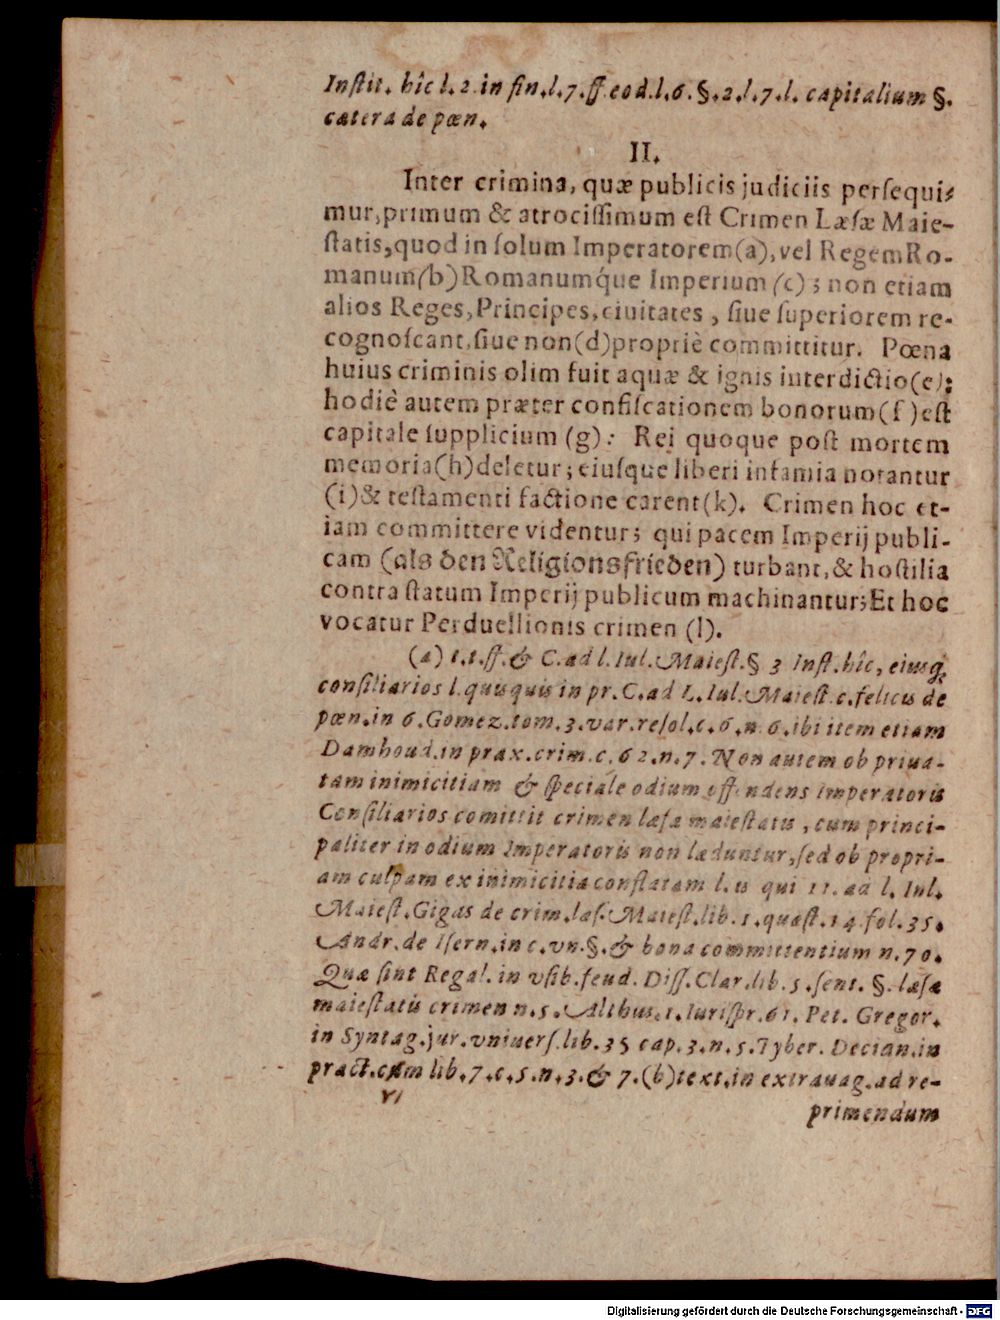 Inſtit. hîc l. 2. in fin. l. 7. ff. eod. l. 6. §. 2. l. 7. l. capitalium §.
cætera de pœn.
II.
Inter crimina, quæ publicis judiciis perſequi⸗
mur, primum & atrociſſimum eſt Crimen Læſæ Maie-
ſtatis, quod in ſolum Imperatorem (a), vel Regem Ro-
manum (b) Romanumq́ue Imperium (c); non etiam
alios Reges, Principes, ciuitates, ſiue ſuperiorem re-
cognoſcant, ſiue non (d) propriè committitur. Pœna
huius criminis olim fuit aquæ & ignis interdictio (e);
hodiè autem præter confiſcationem bonorum (f) eſt
capitale ſupplicium (g): Rei quoque poſt mortem
memoria (h) deletur; eiuſque liberi infamia notantur
(i) & teſtamenti factione carent (k). Crimen hoc et-
iam committere videntur; qui pacem Imperij publi-
cam (als den Religionsfrieden) turbant, & hoſtilia
contra ſtatum Imperij publicum machinantur; Et hoc
vocatur Perduellionis crimen (l).
(a) t. t. ff. & C. ad l. Iul. Maieſt. § 3 Inſt. hîc, eiusq;
conſiliarios l. quisquis in pr. C. ad L. Iul. Maieſt. c. felicis de
pœn. in 6. Gomez. tom. 3. var. reſol. c. 6. n. 6. ibi item etiam
Damhoud. in prax. crim. c. 62. n. 7. Non autem ob priua-
tam inimicitiam & ſpeciale odium offendens Imperatoris
Conſiliarios comittit crimen læſæ maieſtatis, cum princi-
paliter in odium Imperatoris non lædantur, ſed ob propri-
am culpam ex inimicitia conflatam l. is qui 11. ad l. Iul.
Maieſt. Gigas de crim. læſ. Maieſt. lib. 1. quæſt. 14. fol. 35.
Andr. de Iſern. in c. vn. §. & bona committentium n. 70.
Quæ ſint Regal. in vſib. feud. Diſſ. Clar. lib. 5. ſent. §. læſæ
maieſtatis crimen n. 5. Althus. 1. Iuriſpr. 61. Pet. Gregor.
in Syntag. jur. vniuerſ. lib. 35 cap. 3. n. 5. Tyber. Decian. in
pract. crim lib. 7. c. 5. n. 3. & 7. (b) text. in extrauag. ad re-
primendum
Digitalisierung gefördert durch die Deutsche Forschungsgemeinschaft - DFG